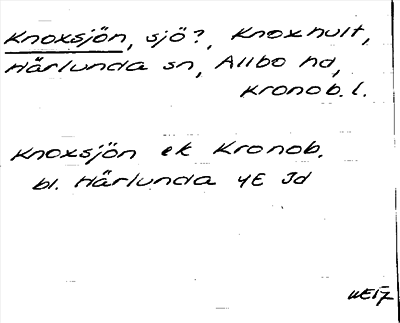 Knoxsjön, sjö?, Knoxhult,
Härlunda sn, Allbo hd,
Kronob. l.
Knoxsjön ek Kronob.
bl. Härlunda 4E Jd